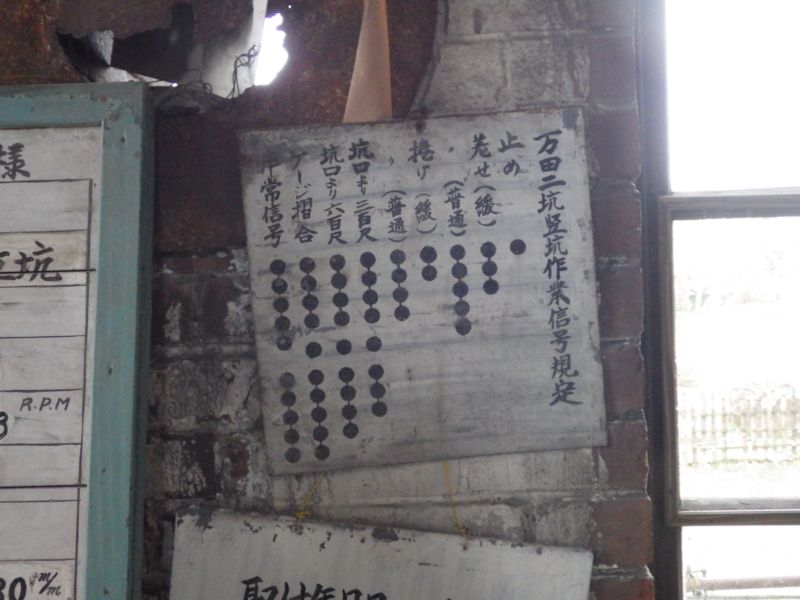 万田二坑竪坑作業信号規定
止め
巻せ(緩)
〃(普通)
捲げ(緩)
〃(普通)
坑口より三百尺
坑口より六百尺
ケージ摺合
非常信号
様
坑
R.P.M
m/m